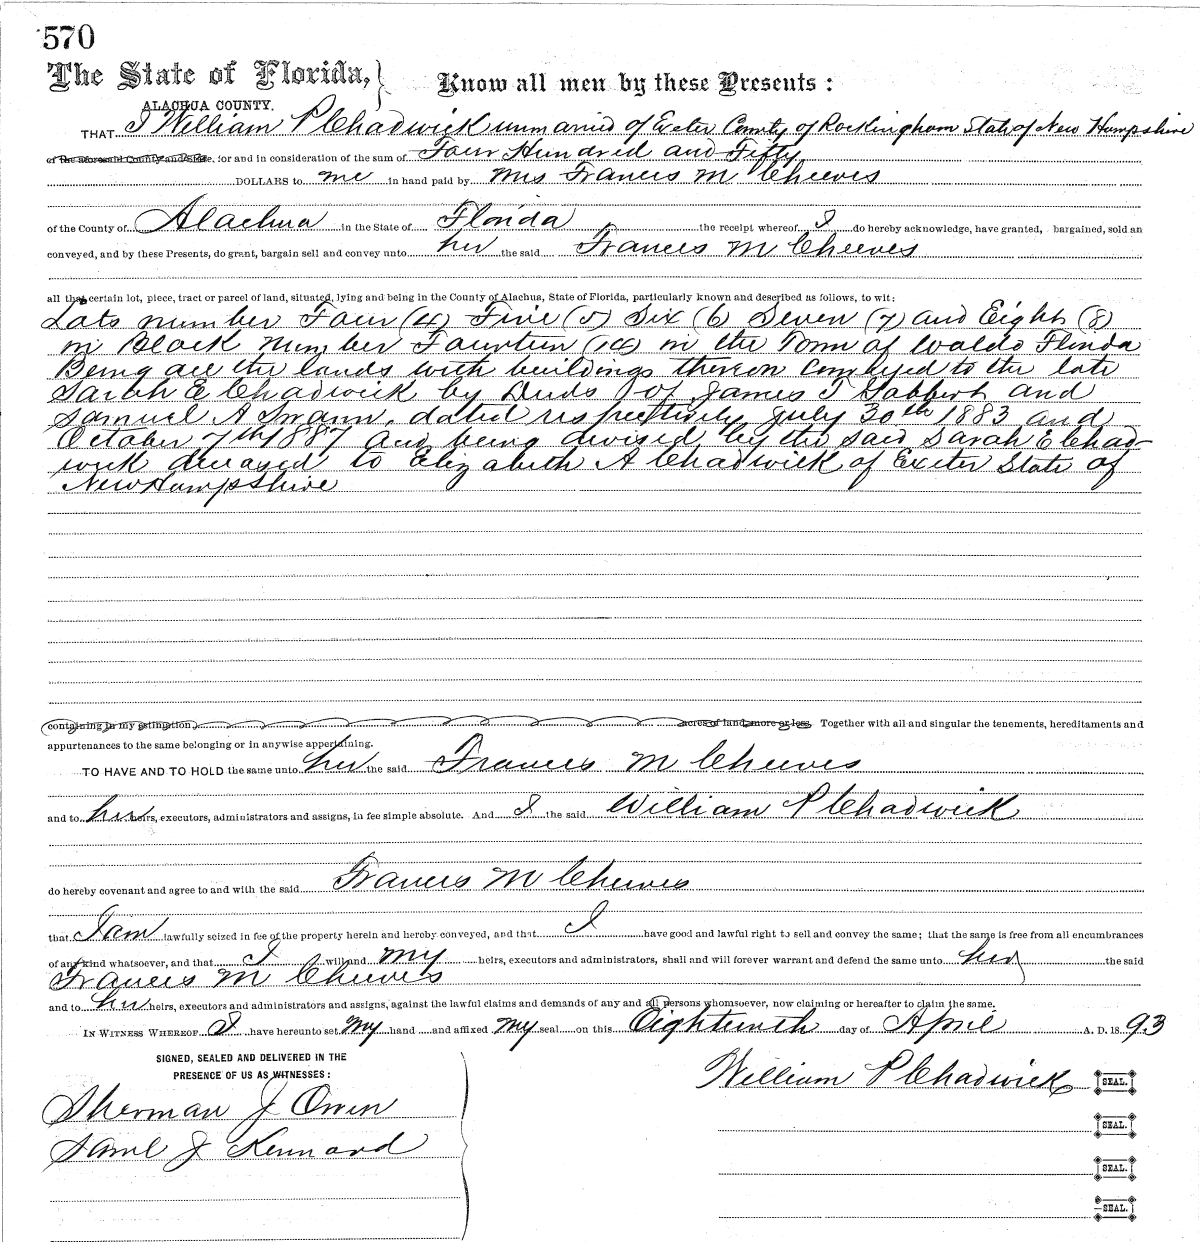 570
The State of Florida,
Know all men by these Presents:
ALACHUA COUNTY.
THAT I William P Chadwick unmarried of Exeter County of Rockingham State of New Hampshire
of the aforesaid County and State, for and in consideration of the sum of Four Hundred and Fifty
DOLLARS to me in hand paid by Mrs Frances M Cheeves
of the County of Alachua in the State of Florida the receipt whereof I do hereby acknowledge, have granted, bargained, sold an
conveyed, and by these Presents, do grant, bargain sell and convey unto her the said Frances M Cheeves
all that certain lot, piece, tract or parcel of land, situated, lying and being in the County of Alachua, State of Florida, particularly known and described as follows, to wit:
Lots number Four (4) Five (5) Six (6) Seven (7) and Eight (8)
in Block number Fourteen (14) in the Town of Waldo Florida
Being all the lands with buildings thereon conveyed to the late
Sarah E Chadwick by Deeds of James T and
Samuel A Swann, dated respectively July 30th 1883 and
October 7th 1887 and being devised by the said Sarah E Chad-
wick deceased to Elizabeth A Chadwick of Exeter State of
New Hampshire
containing in my estimation acres of land, more or less, Together with all and singular the tenements, hereditaments and
appurtenances to the same belonging or in anywise appertaining.
TO HAVE AND TO HOLD the same unto her the said Frances M Cheeves
and to her heirs, executors, administrators and assigns, in fee simple absolute. And I the said William P Chadwick
do hereby covenant and agree to and with the said Frances M Cheeves
that I am lawfully seized in fee of the property herein and hereby conveyed, and that I have good and lawful right to sell and convey the same; that the same is free from all encumbrances
of any kind whatsoever, and that I will and my heirs, executors and administrators, shall and will forever warrant and defend the same unto her the said
Frances M Cheeves
and to her heirs, executors and administrators and assigns, against the lawful claims and demands of any and all persons whomsoever, now claiming or hereafter to claim the same.
IN WITNESS WHEREOF I have hereunto set my hand and affixed my seal on this Eighteenth day of April A. D. 1893
SIGNED, SEALED AND DELIVERED IN THE
PRESENCE OF US AS WITNESSES:
William P Chadwick SEAL.
Sherman J Owen
SEAL.
Saml J Kennard
SEAL.
SEAL.